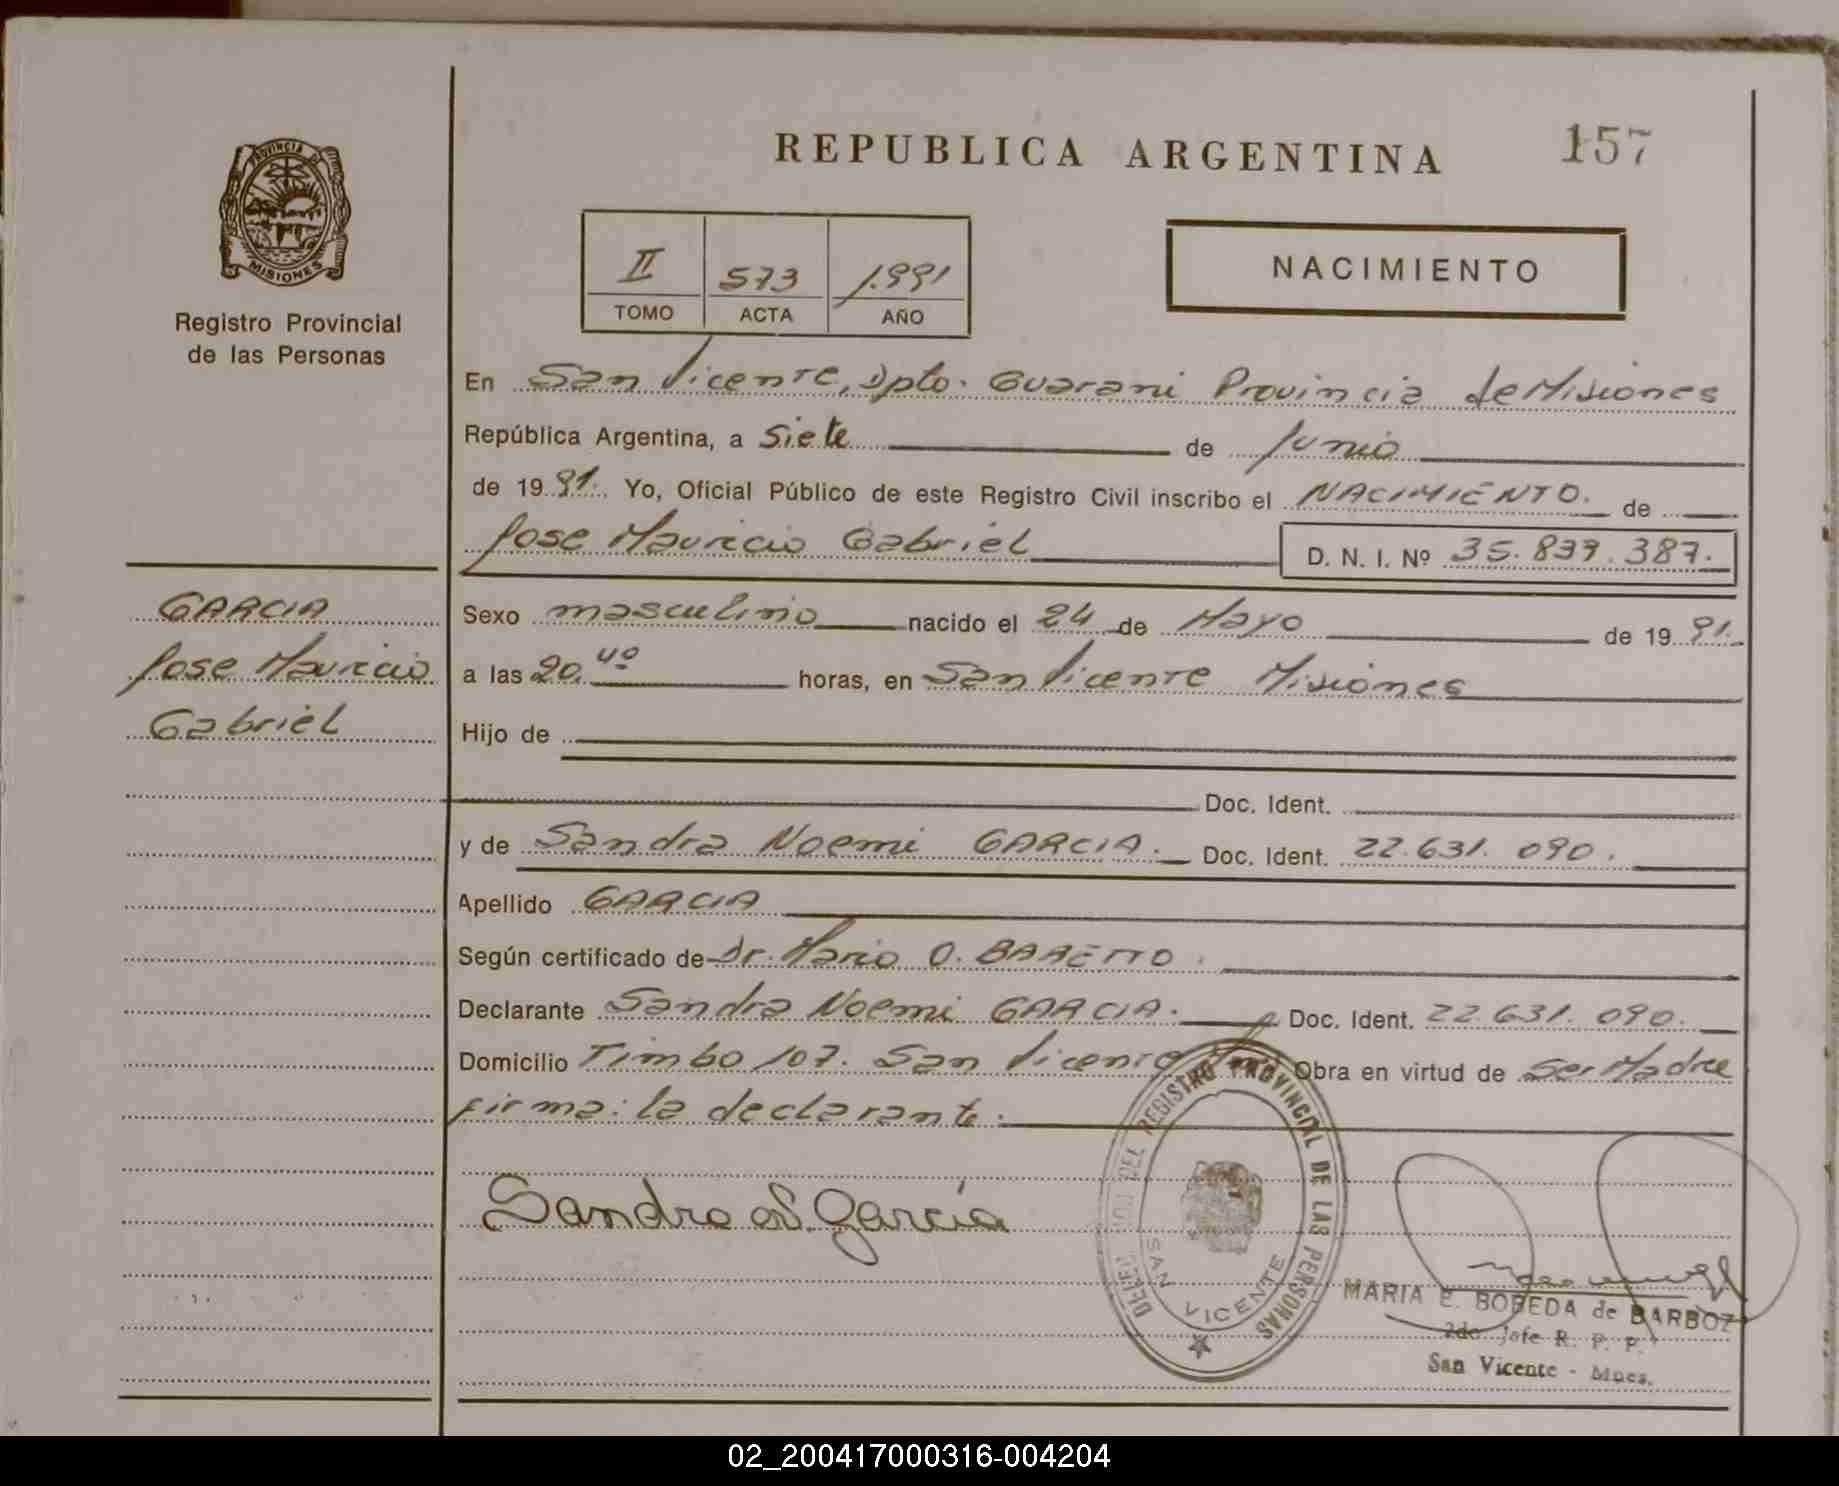 REPUBLICA ARGENTINA
157
PROVINCIA DE
MISIONES
Registro Provincial
de las Personas
II 573 1.991
TOMO ACTA AÑO
NACIMIENTO
En San Vicente, Dpto. Guarani Provincia de Misiones
República Argentina, a Siete de Junio
de 19 91. Yo, Oficial Público de este Registro Civil inscribo el NACIMIENTO. de
Jose Mauricio Gabriel D. N. I. Nº 35.837.387.
GARCIA
Jose Mauricio
Gabriel
Sexo masculino nacido el 24 de Mayo de 19 91.
a las 20.40 horas, en San Vicente Misiones
Hijo de
Doc. Ident.
y de Sandra Noemi GARCIA. Doc. Ident. 22.631.090.
Apellido GARCIA
Según certificado de Dr. Mario O. BARETTO.
Declarante Sandra Noemi GARCIA. Doc. Ident. 22.631.090.
Domicilio Timbo 107. San Vicente Obra en virtud de Ser Madre
firma: la declarante.
Sandra N. Garcia
DEL REGISTRO PROVINCIAL DE LAS PERSONAS
SAN VICENTE
MARIA E. BOBEDA de BARBOZ
2do. Jefe R. P. P.
San Vicente - Mnes.
02_200417000316-004204